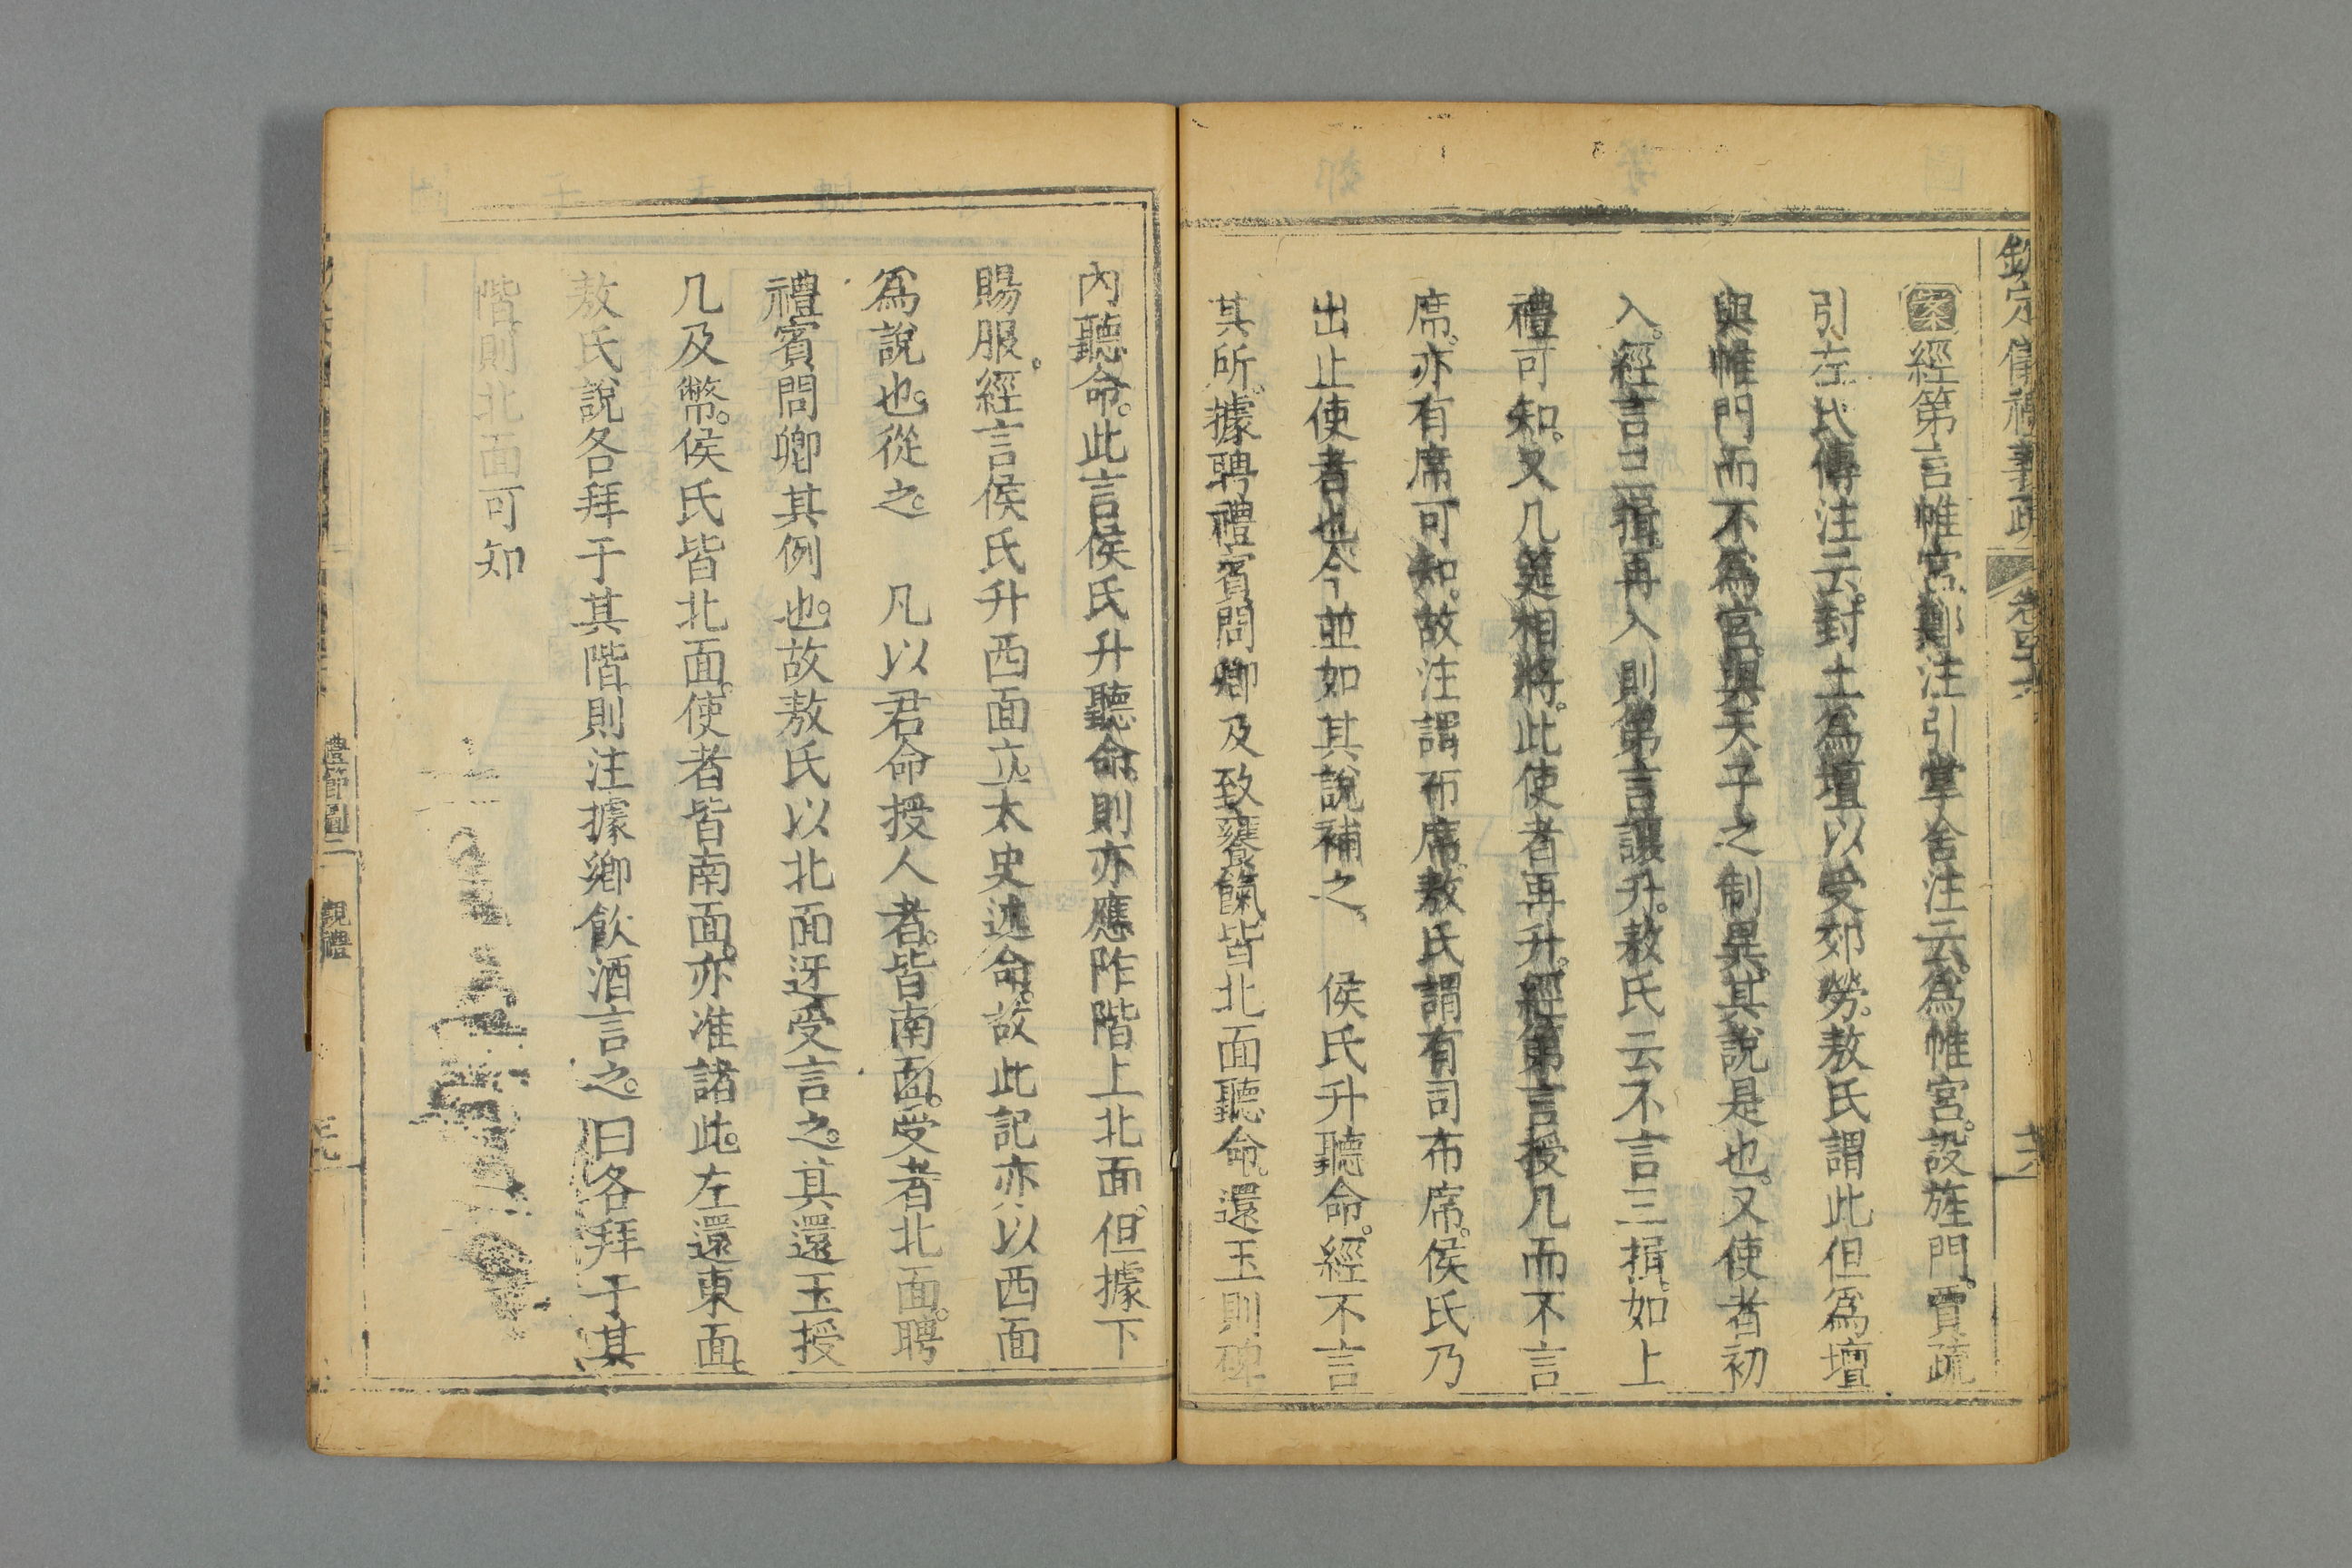 欽定儀禮義疏 卷四十六
案經第言帷宮鄭注引掌舍注云爲帷宮設旌門賈疏
引左氏傳注云封土爲壇以受郊勞敖氏謂此但爲壇
與帷門而不爲宮與天子之制異其說是也又使者初
入經言三揖再入則第言讓升敖氏云不言三揖如上
禮可知又几筵相將此使者再升經第言授几而不言
席亦有席可知故注謂布席敖氏謂有司布席侯氏乃
出止使者也今並如其說補之 侯氏升聽命經不言
其所據聘禮賓問卿及致饔餼皆北面聽命還玉則碑
內聽命此言侯氏升聽命則亦應阼階上北面但據下
賜服經言侯氏升西面立太史述命故此記亦以西面
爲說也從之 凡以君命授人者皆南面受者北面聘
禮賓問卿其例也故敖氏以北面訝受言之其還玉授
几及幣侯氏皆北面使者皆南面亦准諸此左還東面
敖氏說各拜于其階則注據鄉飲酒言之曰各拜于其
階則北面可知
禮節圖二 覲禮